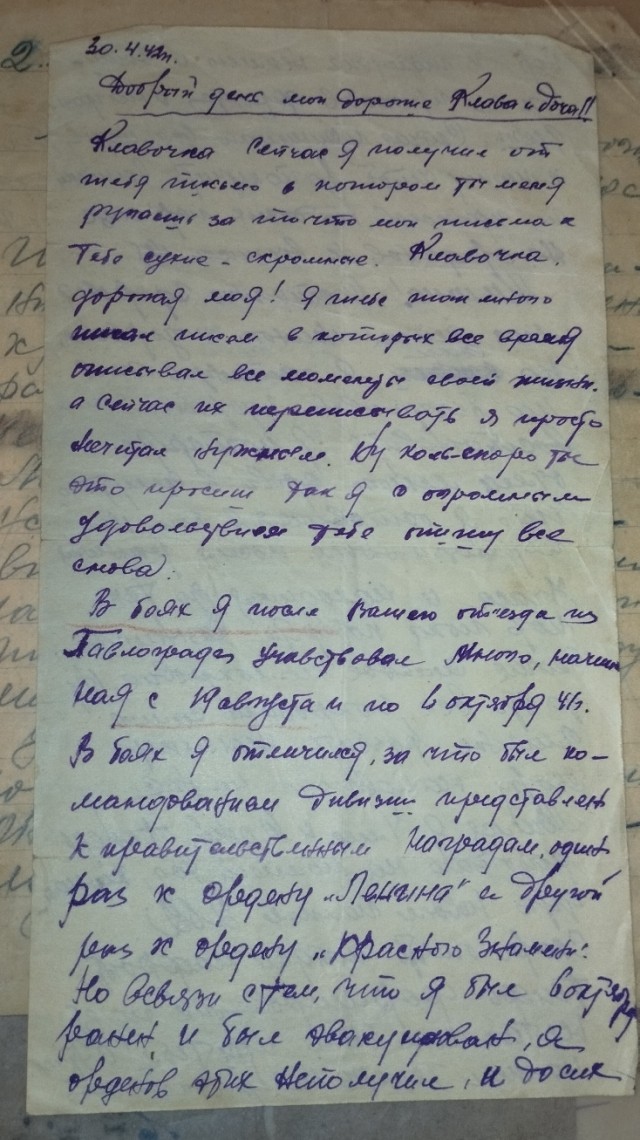 30.4.42г.
Добрый день мои дорогие Клава и доча!!
Клавочка сейчас я получил от
тебя письмо в котором ты меня
ругаешь за то что мои письма к
тебе сухие - скромные. Клавочка,
дорогая моя! я тебе так много
писал писем в которых все время
описывал все моменты своей жизни.
а сейчас их переписывать я просто
несчитал нужным. Ну коль-скоро ты
это просиш так я с огромным
удовольствием тебе опишу все
снова.
В боях я после Вашего отъезда из
Павлограда учавствовал много, начи
ная с августа и по 6 октября 41г.
В боях я отличился, за что был ко-
мандованием дивизии представлен
к правительственным наградам, один
раз к ордену „Ленина" и другой
раз к ордену „Красного Знамени".
Но всвязи с тем, что я был в октябре
ранен и был эвакуирован, я
орденов этих неполучил, и до сих